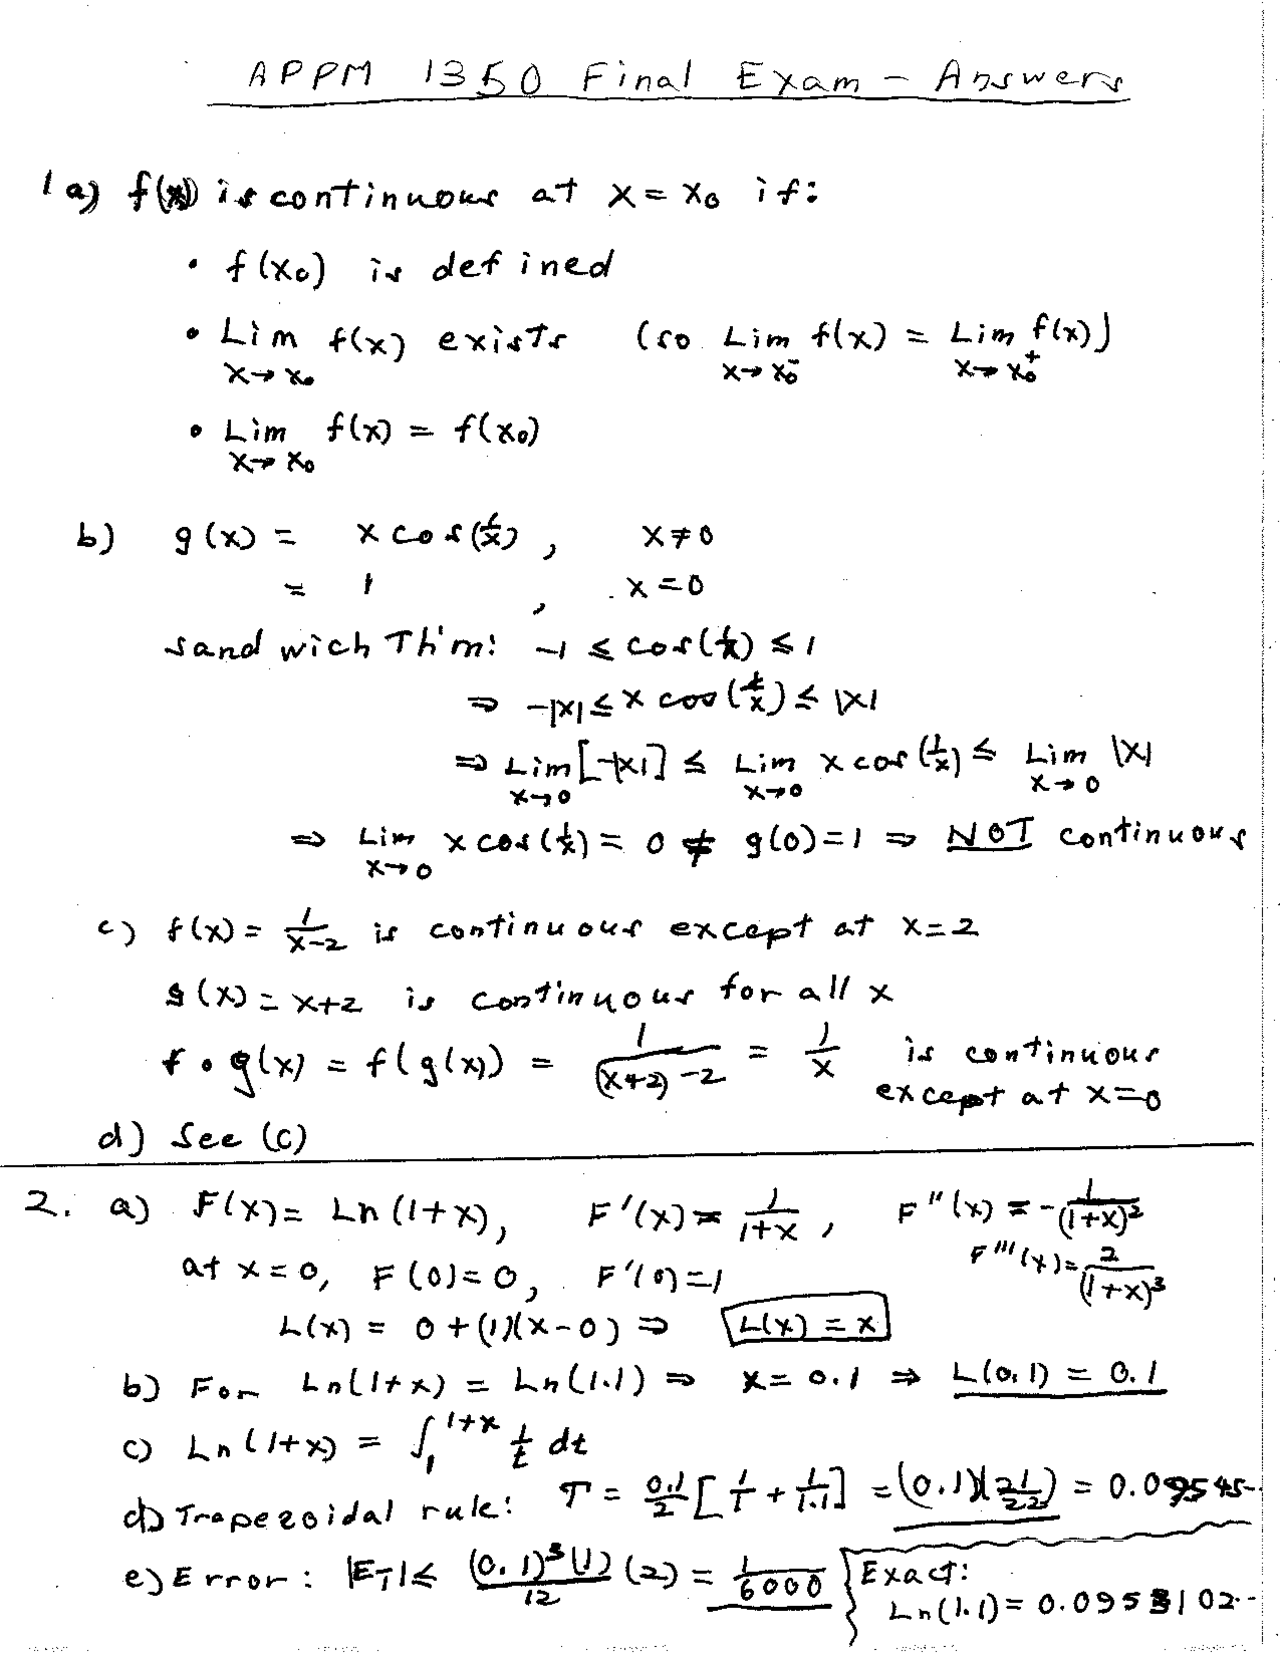 APPM 1350 Final Exam - Answers
1a) f(x) is continuous at x = x₀ if:
• f(x₀) is defined
• Lim x→x₀ f(x) exists (so Lim x→x₀⁻ f(x) = Lim x→x₀⁺ f(x))
• Lim x→x₀ f(x) = f(x₀)
b) g(x) = x cos(1/x), x ≠ 0
= 1, x = 0
Sandwich Th'm: -1 ≤ cos(1/x) ≤ 1
⇒ -|x| ≤ x cos(1/x) ≤ |x|
⇒ Lim x→0 [-|x|] ≤ Lim x→0 x cos(1/x) ≤ Lim x→0 |x|
⇒ Lim x→0 x cos(1/x) = 0 ≠ g(0) = 1 ⇒ NOT continuous
c) f(x) = 1/(x-2) is continuous except at x = 2
g(x) = x+2 is continuous for all x
f∘g(x) = f(g(x)) = 1/((x+2)-2) = 1/x is continuous except at x = 0
d) See (c)
2. a) F(x) = Ln(1+x), F'(x) = 1/(1+x), F''(x) = -1/(1+x)²
at x = 0, F(0) = 0, F'(0) = 1 F'''(x) = 2/(1+x)³
L(x) = 0 + (1)(x-0) ⇒ L(x) = x
b) For Ln(1+x) = Ln(1.1) ⇒ x = 0.1 ⇒ L(0.1) = 0.1
c) Ln(1+x) = ∫₁^(1+x) 1/t dt
d) Trapezoidal rule: T = 0.1/2 [1/1 + 1/1.1] = (0.1)(21/22) = 0.09545--
e) Error: |E_T| ≤ (0.1)³(1)/12 (2) = 1/6000 Exact:
Ln(1.1) = 0.0953102--